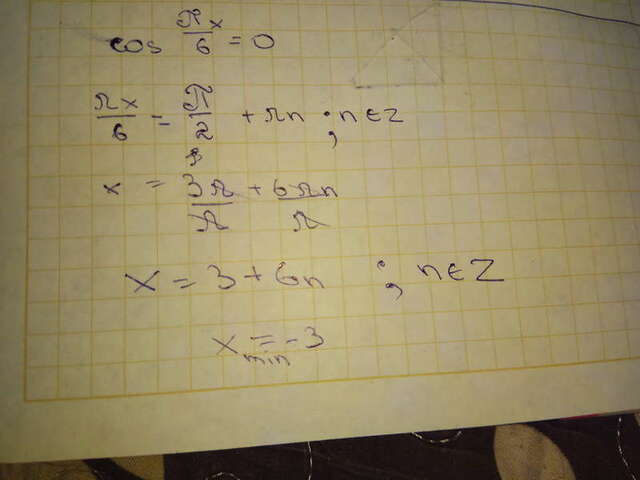 cos πx/6 = 0
πx/6 = π/2 + πn ; n∈Z
x = 3π/π + 6πn/π
x = 3 + 6n ; n∈Z
x min = -3